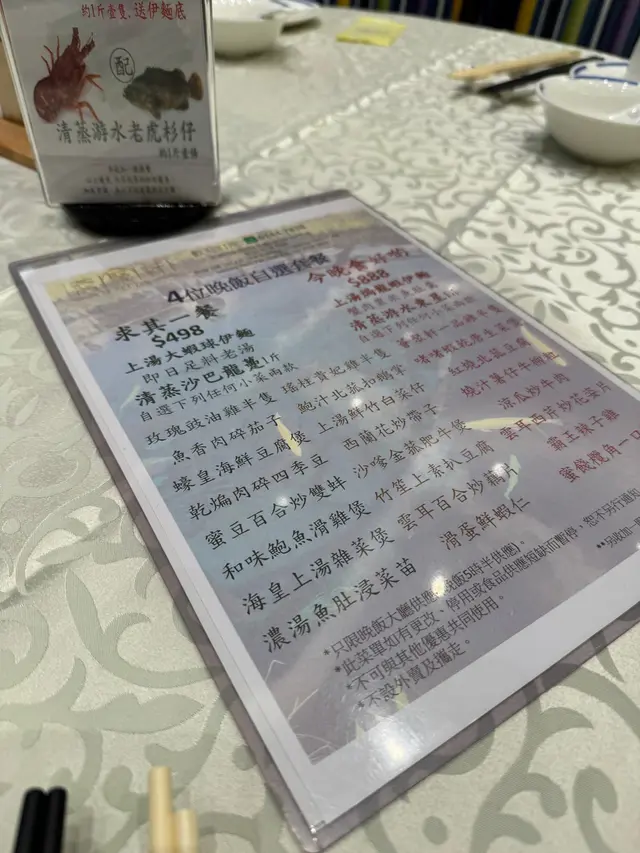 約1斤壹隻，送伊麵底
配
清蒸游水老虎杉仔
約1斤壹條
4位晚飯自選套餐
求其一餐
$498
上湯大蝦球伊麵
即日足料老湯
清蒸沙巴龍躉1斤
自選下列任何小菜兩款
玫瑰豉油雞半隻
瑤柱貴妃雞半隻
魚香肉碎茄子
鮑汁北菇扣鵝掌
蠔皇海鮮豆腐煲
上湯鮮竹白菜仔
乾煸肉碎四季豆
西蘭花炒帶子
蜜豆百合炒雙蚌
沙嗲金菇肥牛煲
和味鮑魚滑雞煲
竹笙上素扒豆腐
海皇上湯雜菜煲
雲耳百合炒鷄片
濃湯魚肚浸菜苗
滑蛋鮮蝦仁
今晚食好啲
$888
上湯焗龍蝦伊麵
紅燒北菇豆腐
燒汁薯仔牛柳粒
涼瓜炒牛肉
雲耳西芹炒花枝片
霸王辣子雞
*只限晚飯大廳供應(晚飯5時半供應)。
*此菜單如有更改、停用或食品供應短缺而暫停，恕不另行通知
*不可與其他優惠共同使用。
*不設外賣及攜走。